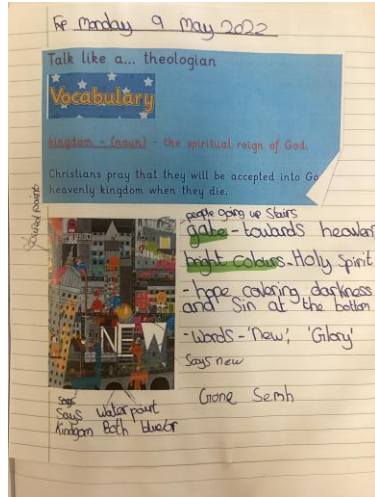 Monday 9 May 2022
Talk like a... theologian
Vocabulary
kingdom - (noun) - the spiritual reign of God.
Christians pray that they will be accepted into Go
heavenly kingdom when they die.
people going up Stairs
- towards heaven
bright colours - Holy Spirit
- hope covering darkness
and Sin at the bottom
- words - 'New', 'Glory'
Says new
NEW
Says water
Both